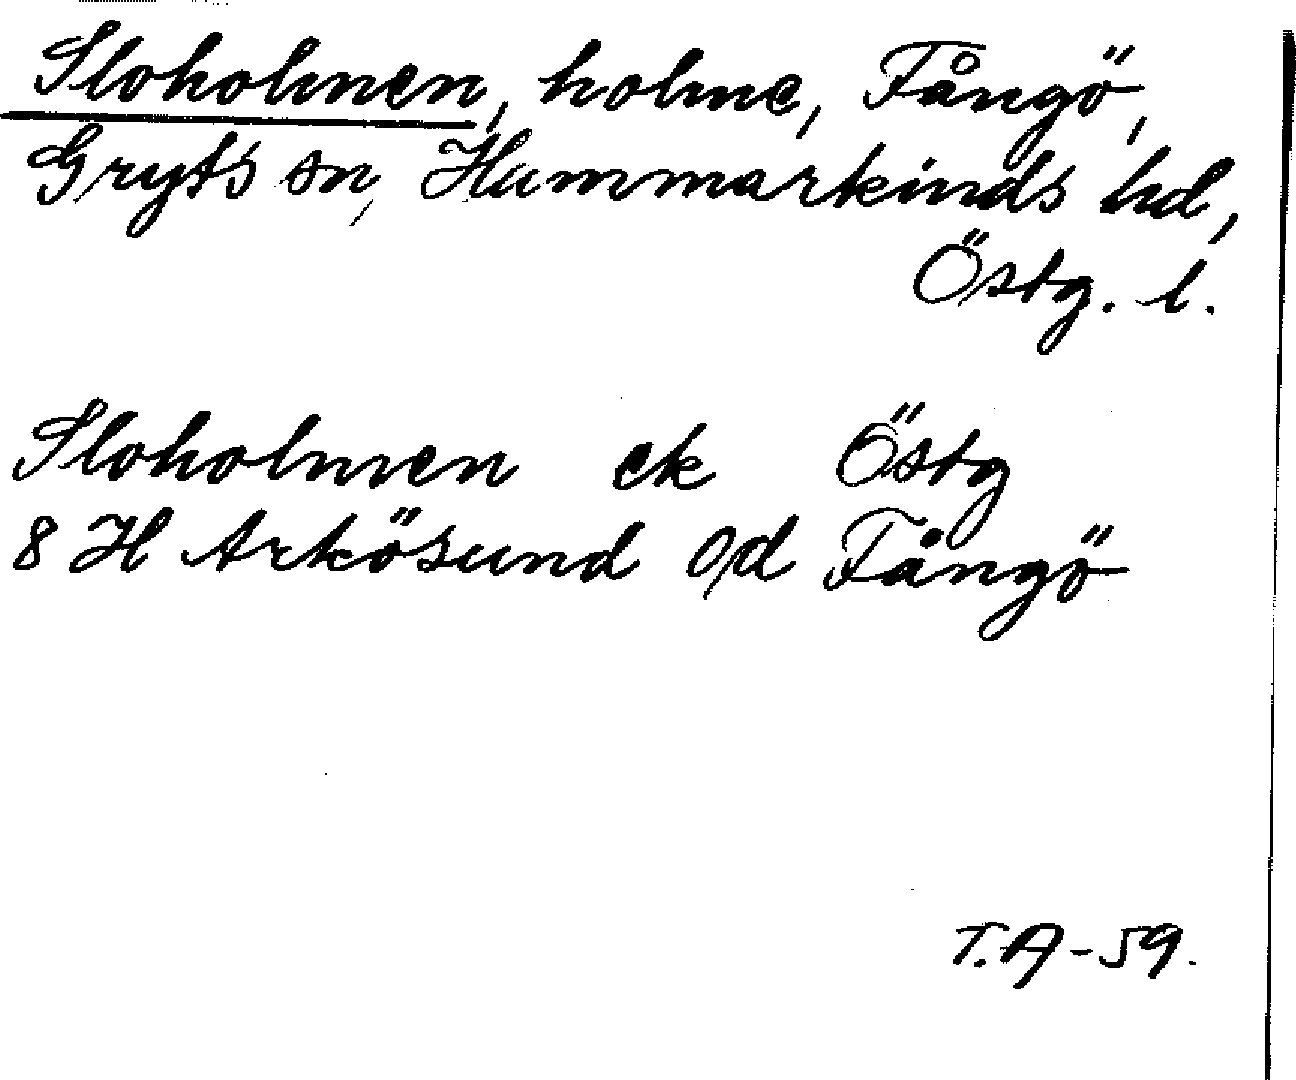 Sloholmen, holme, Fångö,
Gryts sn, Hammarkinds hd,
Östg. l.
Sloholmen ek Östg
8 H Arkösund Od Fångö
T.A-59.